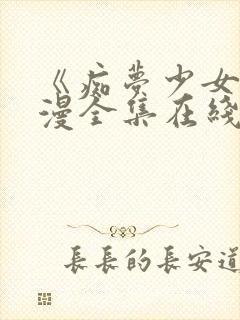 《痴夢少女
漫全集在綫
長長的長安道